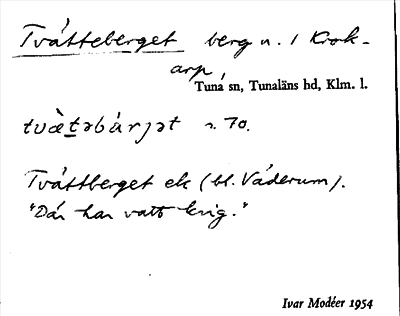 Tvátteberget berg n. i Krok-
arp
Tuna sn, Tunaläns hd, Klm. l.
tvæ̀t̲əbárjət s. 70.
Tváttberget ek (bl. Váderum).
"Där har vatt krig."
Ivar Modéer 1954